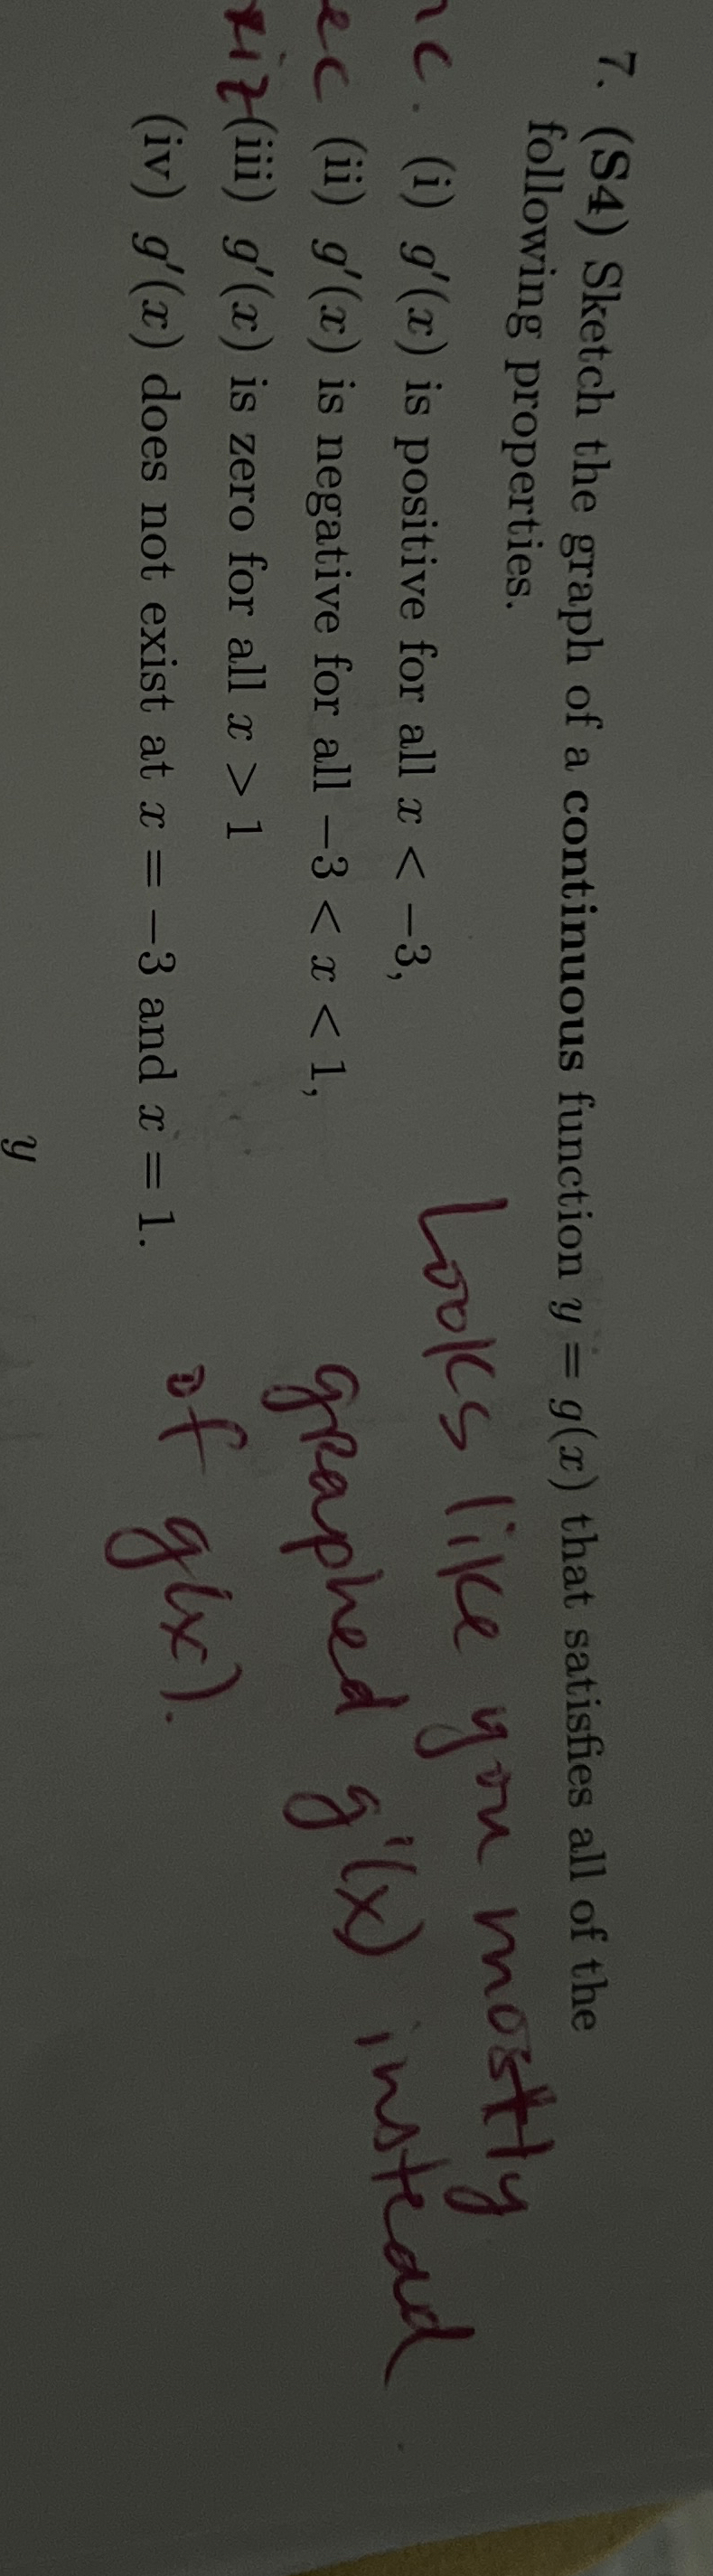 7. (S4) Sketch the graph of a continuous function y = g(x) that satisfies all of the
following properties.
nc. (i) g′(x) is positive for all x < −3,
ec (ii) g′(x) is negative for all −3 < x < 1,
riz (iii) g′(x) is zero for all x > 1
(iv) g′(x) does not exist at x = −3 and x = 1.
Looks like you mostly
graphed g'(x) instead
of g(x).
y